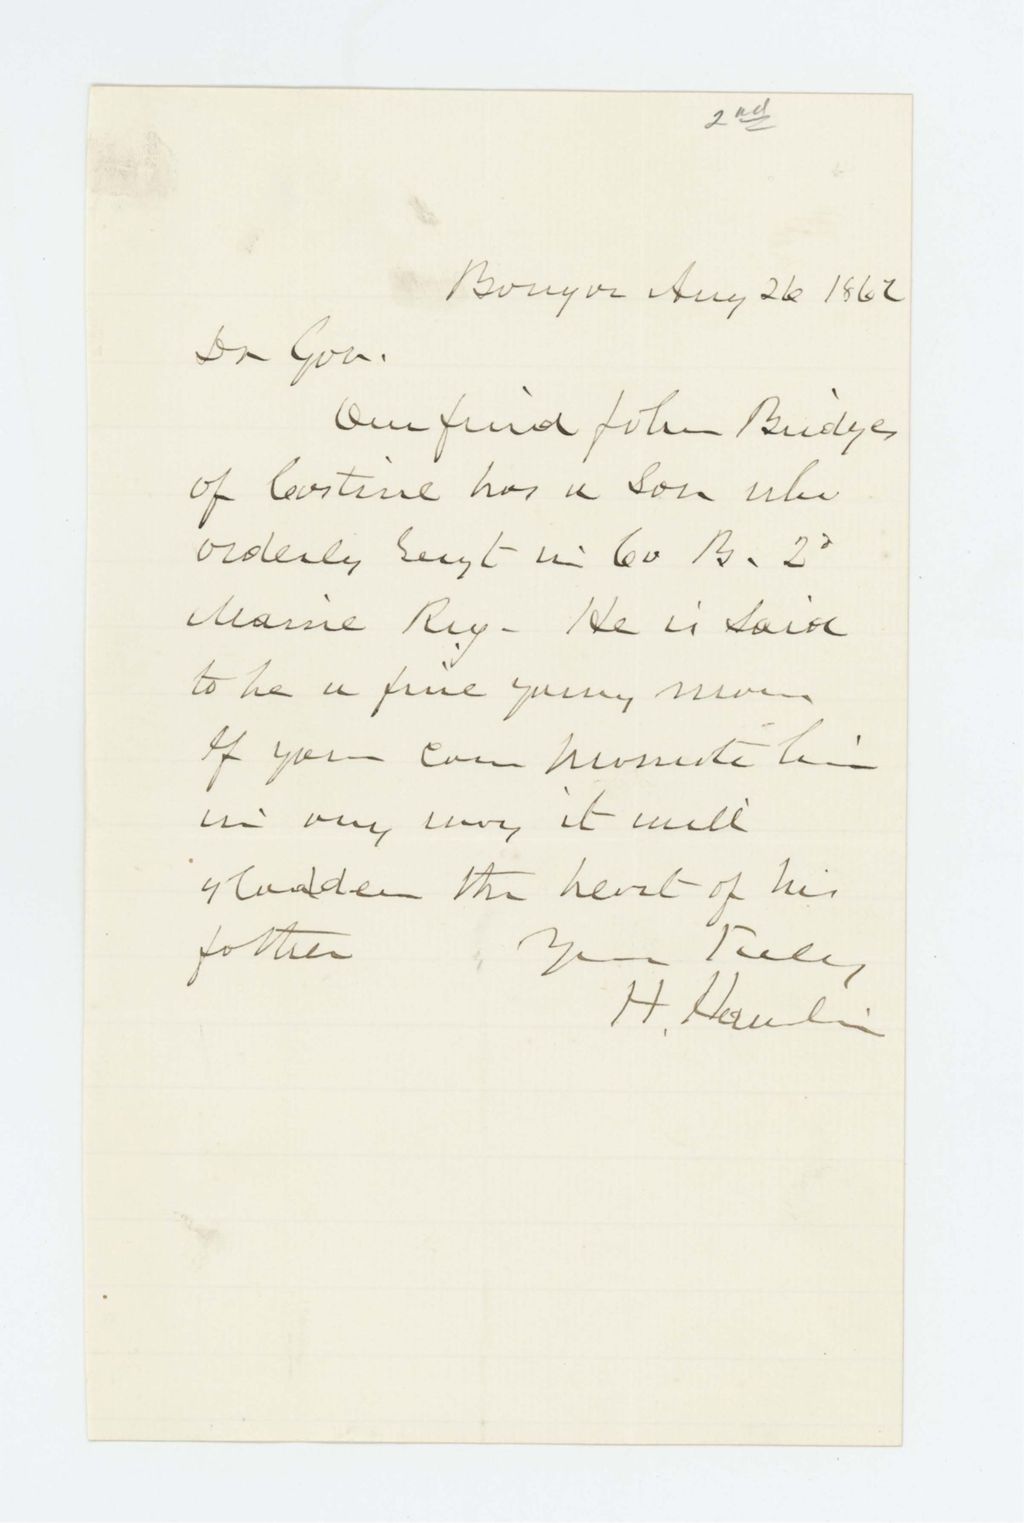 2nd
Bangor Aug 26 1862
Dr Gov.
Our friend John Bridges
of Castine has a Son who
orderly Sergt in Co B. 2d
Maine Reg - He is Said
to be a fine young man
If you can promote him
in any way it will
gladden the heart of his
father Your Truly
H. Hamlin